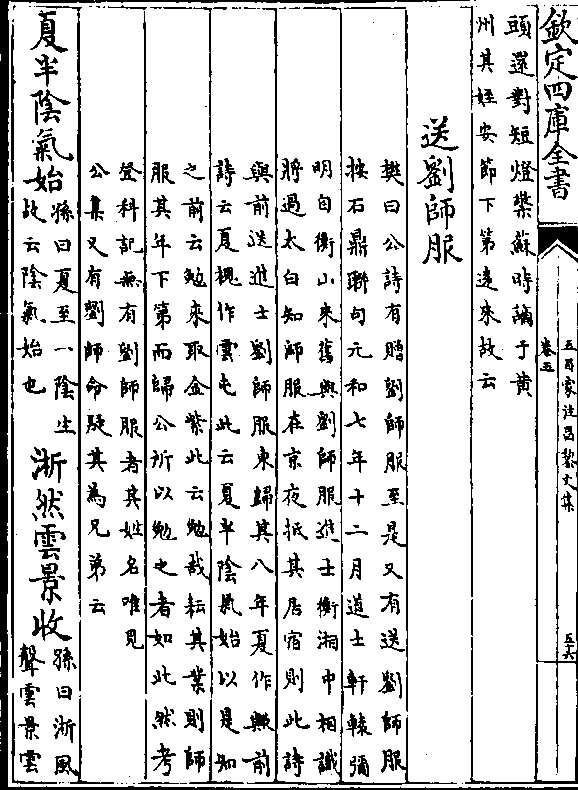 欽定四庫全書
五百家注昌黎文集
卷五
五六
頭還對短燈檠蘇時謫于黄
州其姪安節下第逺來故云
送劉師服
樊曰公詩有贈劉師服至是又有送劉師服
按石鼎聯句元和七年十二月道士軒轅彌
明自衡山來舊與劉師服進士衡湘中相識
將過太白知師服在京夜抵其居宿則此詩
與前送進士劉師服東歸其八年夏作歟前
詩云夏槐作雲屯此云夏半陰氣始以是知
之前云勉來取金紫此云勉哉耘其業則師
服其年下第而歸公所以勉之者如此然考
登科記無有劉師服者其姓名唯見
公集又有劉師命疑其為兄弟云
夏半陰氣始
孫曰夏至一陰生
故云陰氣始也
淅然雲景收
孫曰淅風
聲雲景雲